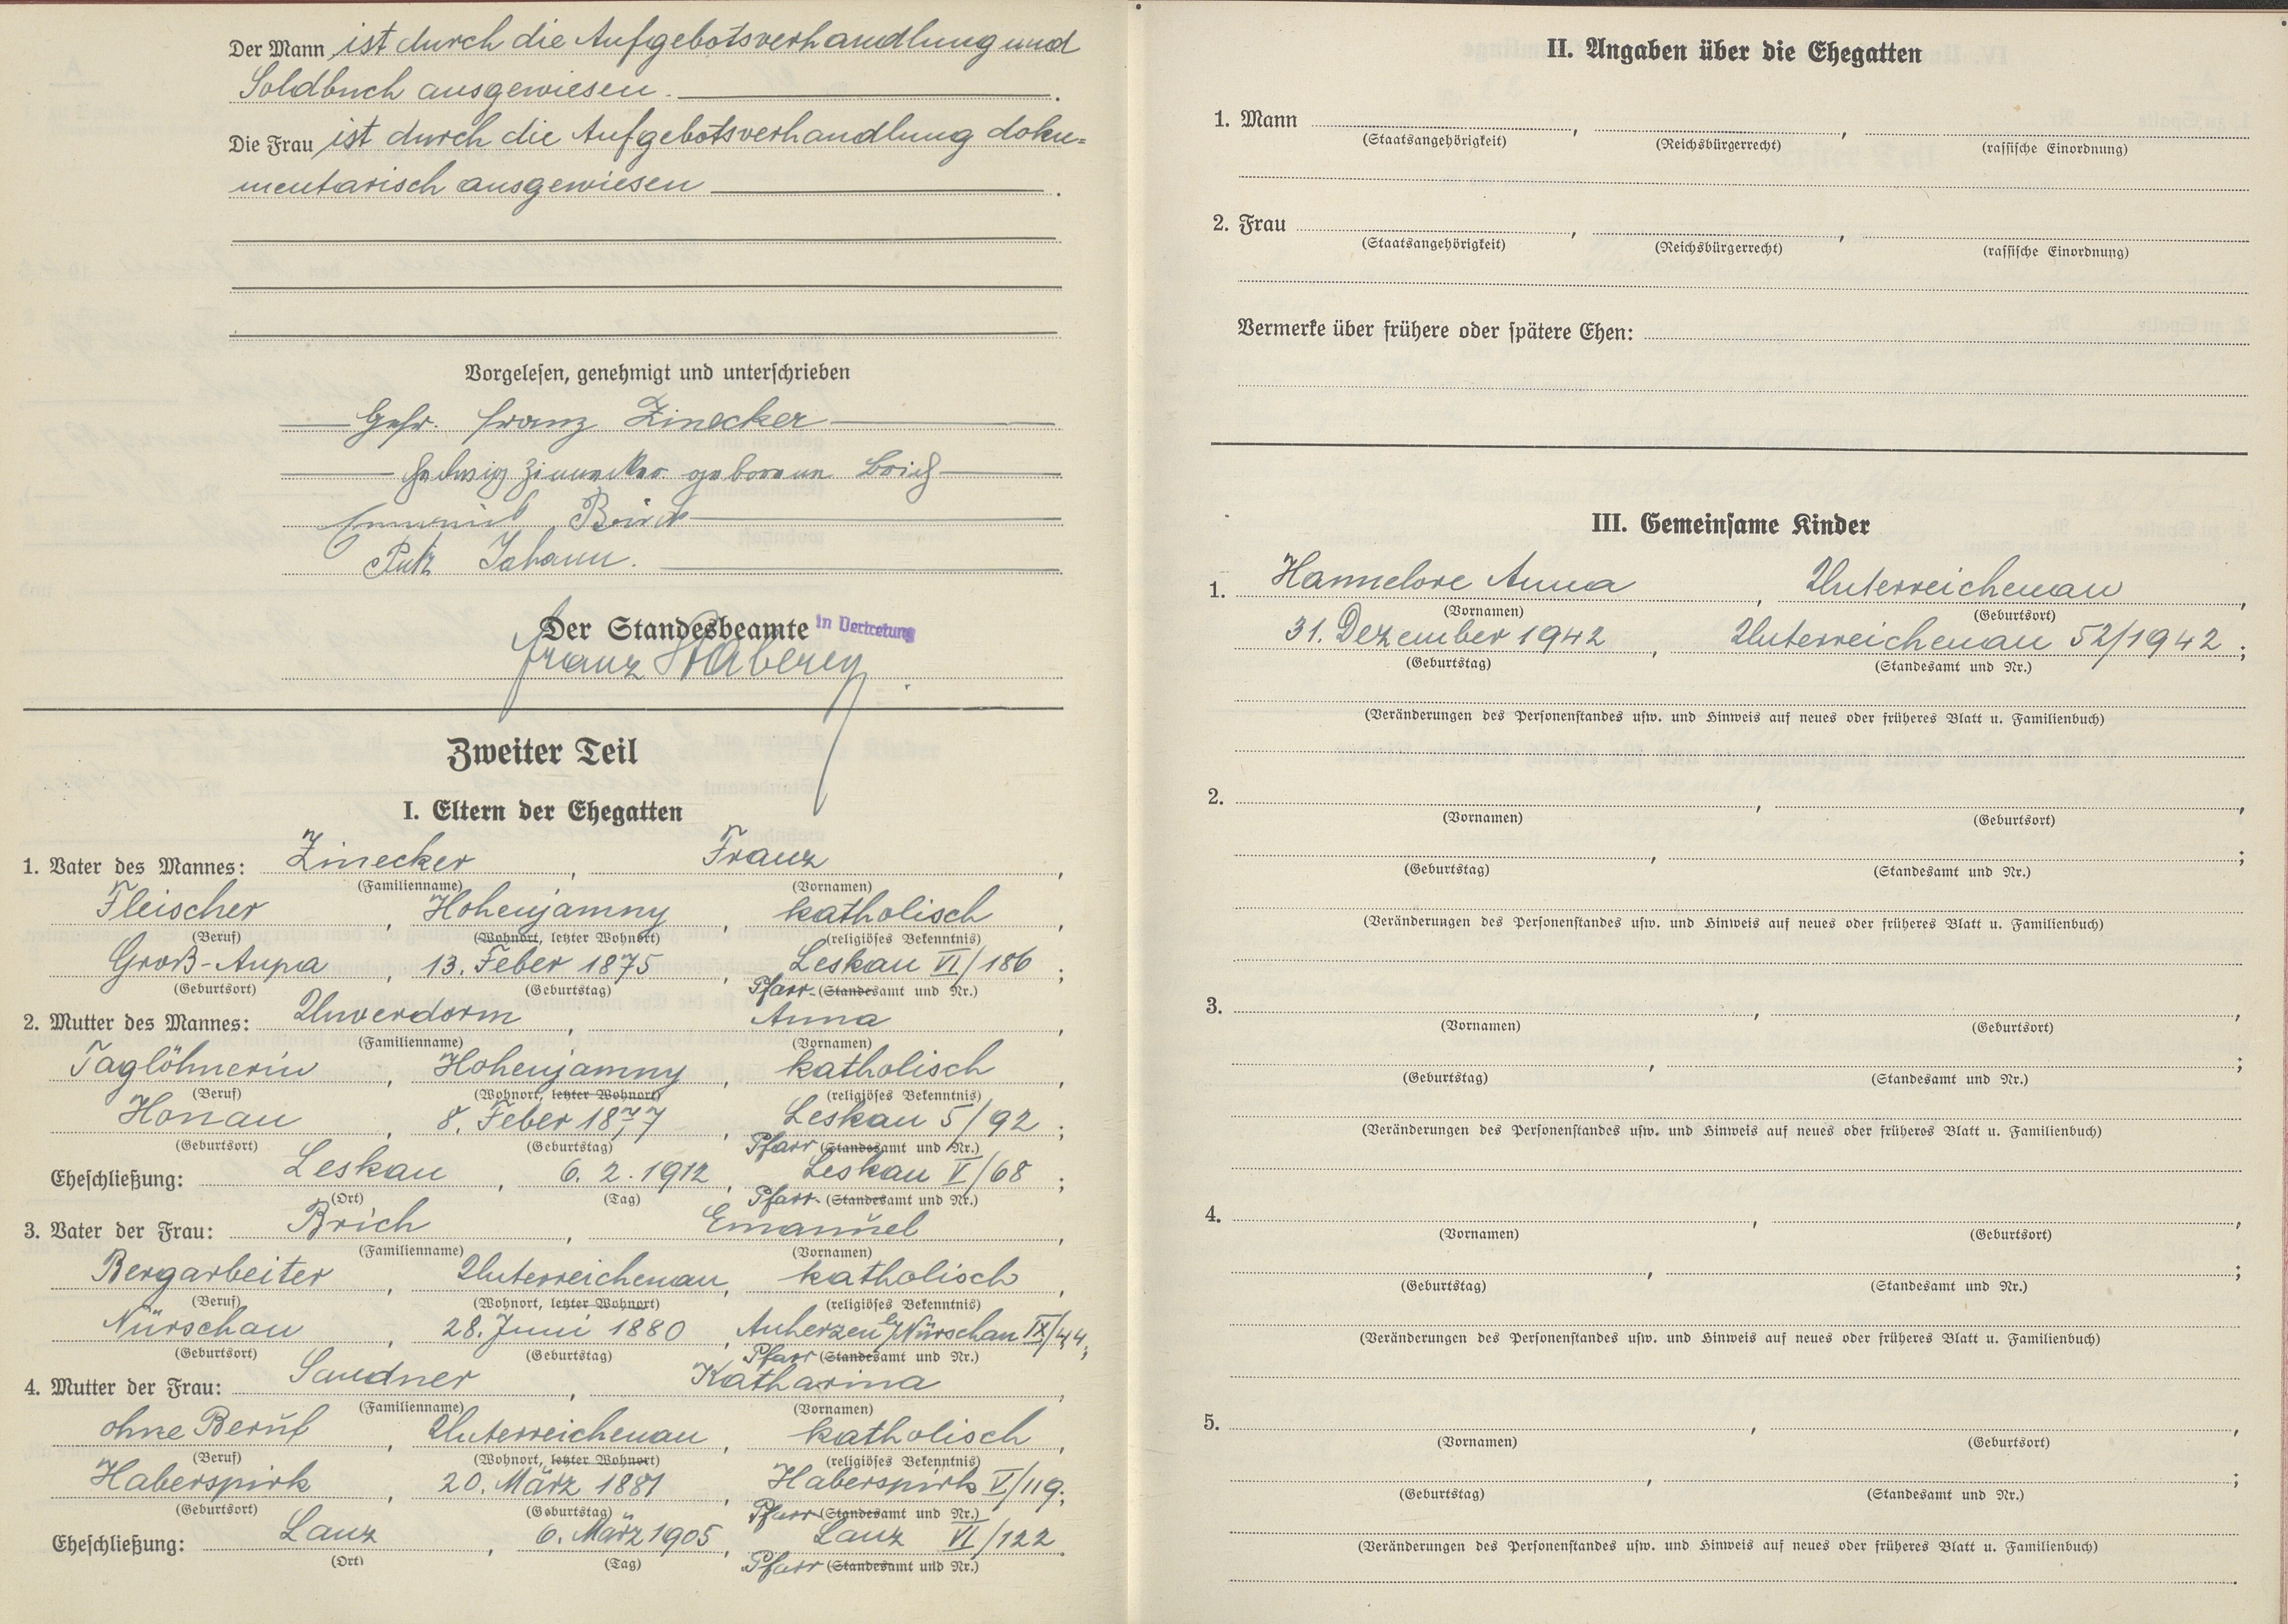 Der Mann ist durch die Aufgebotsverhandlung und
Soldbuch ausgewiesen.
Die Frau ist durch die Aufgebotsverhandlung doku=
mentarisch ausgewiesen
Vorgelesen, genehmigt und unterschrieben
Gefr. Franz Zinecker
Hedwig Zinnecker geborene Brich
Brich
Putz Johann.
Der Standesbeamte in Vertretung
Franz
Zweiter Teil
I. Eltern der Ehegatten
1. Vater des Mannes: Zinecker, Franz,
(Familienname) (Vornamen)
Fleischer, Hohenjamny, katholisch,
(Beruf) (Wohnort, letzter Wohnort) (religiöses Bekenntnis)
Groß-Aupa, 13. Feber 1875, Leskau VI/186;
(Geburtsort) (Geburtstag) Pfarr- (Standesamt und Nr.)
2. Mutter des Mannes: Unverdorm, Anna,
(Familienname) (Vornamen)
Taglöhnerin, Hohenjamny, katholisch,
(Beruf) (Wohnort, letzter Wohnort) (religiöses Bekenntnis)
Honau, 8. Feber 1877, Leskau 5/92;
(Geburtsort) (Geburtstag) Pfarr (Standesamt und Nr.)
Eheschließung: Leskau, 6. 2. 1912, Leskau V/68;
(Ort) (Tag) Pfarr- (Standesamt und Nr.)
3. Vater der Frau: Brich, Emanuel,
(Familienname) (Vornamen)
Bergarbeiter, Unterreichenau, katholisch,
(Beruf) (Wohnort, letzter Wohnort) (religiöses Bekenntnis)
Nürschau, 28. Juni 1880, Auherzen b/Nürschau IX/44;
(Geburtsort) (Geburtstag) Pfarr (Standesamt und Nr.)
4. Mutter der Frau: Sandner, Katharina,
(Familienname) (Vornamen)
ohne Beruf, Unterreichenau, katholisch,
(Beruf) (Wohnort, letzter Wohnort) (religiöses Bekenntnis)
Haberspirk, 20. März 1881, Haberspirk V/119;
(Geburtsort) (Geburtstag) Pfarr (Standesamt und Nr.)
Eheschließung: Lanz, 6. März 1905, Lanz VI/122.
(Ort) (Tag) Pfarr (Standesamt und Nr.)
II. Angaben über die Ehegatten
1. Mann , ,
(Staatsangehörigkeit) (Reichsbürgerrecht) (rassische Einordnung)
2. Frau , ,
(Staatsangehörigkeit) (Reichsbürgerrecht) (rassische Einordnung)
Vermerke über frühere oder spätere Ehen:
III. Gemeinsame Kinder
1. Hannelore Anna, Unterreichenau,
(Vornamen) (Geburtsort)
31. Dezember 1942, Unterreichenau 52/1942;
(Geburtstag) (Standesamt und Nr.)
(Veränderungen des Personenstandes usw. und Hinweis auf neues oder früheres Blatt u. Familienbuch)
2. , ,
(Vornamen) (Geburtsort)
, ;
(Geburtstag) (Standesamt und Nr.)
(Veränderungen des Personenstandes usw. und Hinweis auf neues oder früheres Blatt u. Familienbuch)
3. , ,
(Vornamen) (Geburtsort)
, ;
(Geburtstag) (Standesamt und Nr.)
(Veränderungen des Personenstandes usw. und Hinweis auf neues oder früheres Blatt u. Familienbuch)
4. , ,
(Vornamen) (Geburtsort)
, ;
(Geburtstag) (Standesamt und Nr.)
(Veränderungen des Personenstandes usw. und Hinweis auf neues oder früheres Blatt u. Familienbuch)
5. , ,
(Vornamen) (Geburtsort)
, ;
(Geburtstag) (Standesamt und Nr.)
(Veränderungen des Personenstandes usw. und Hinweis auf neues oder früheres Blatt u. Familienbuch)